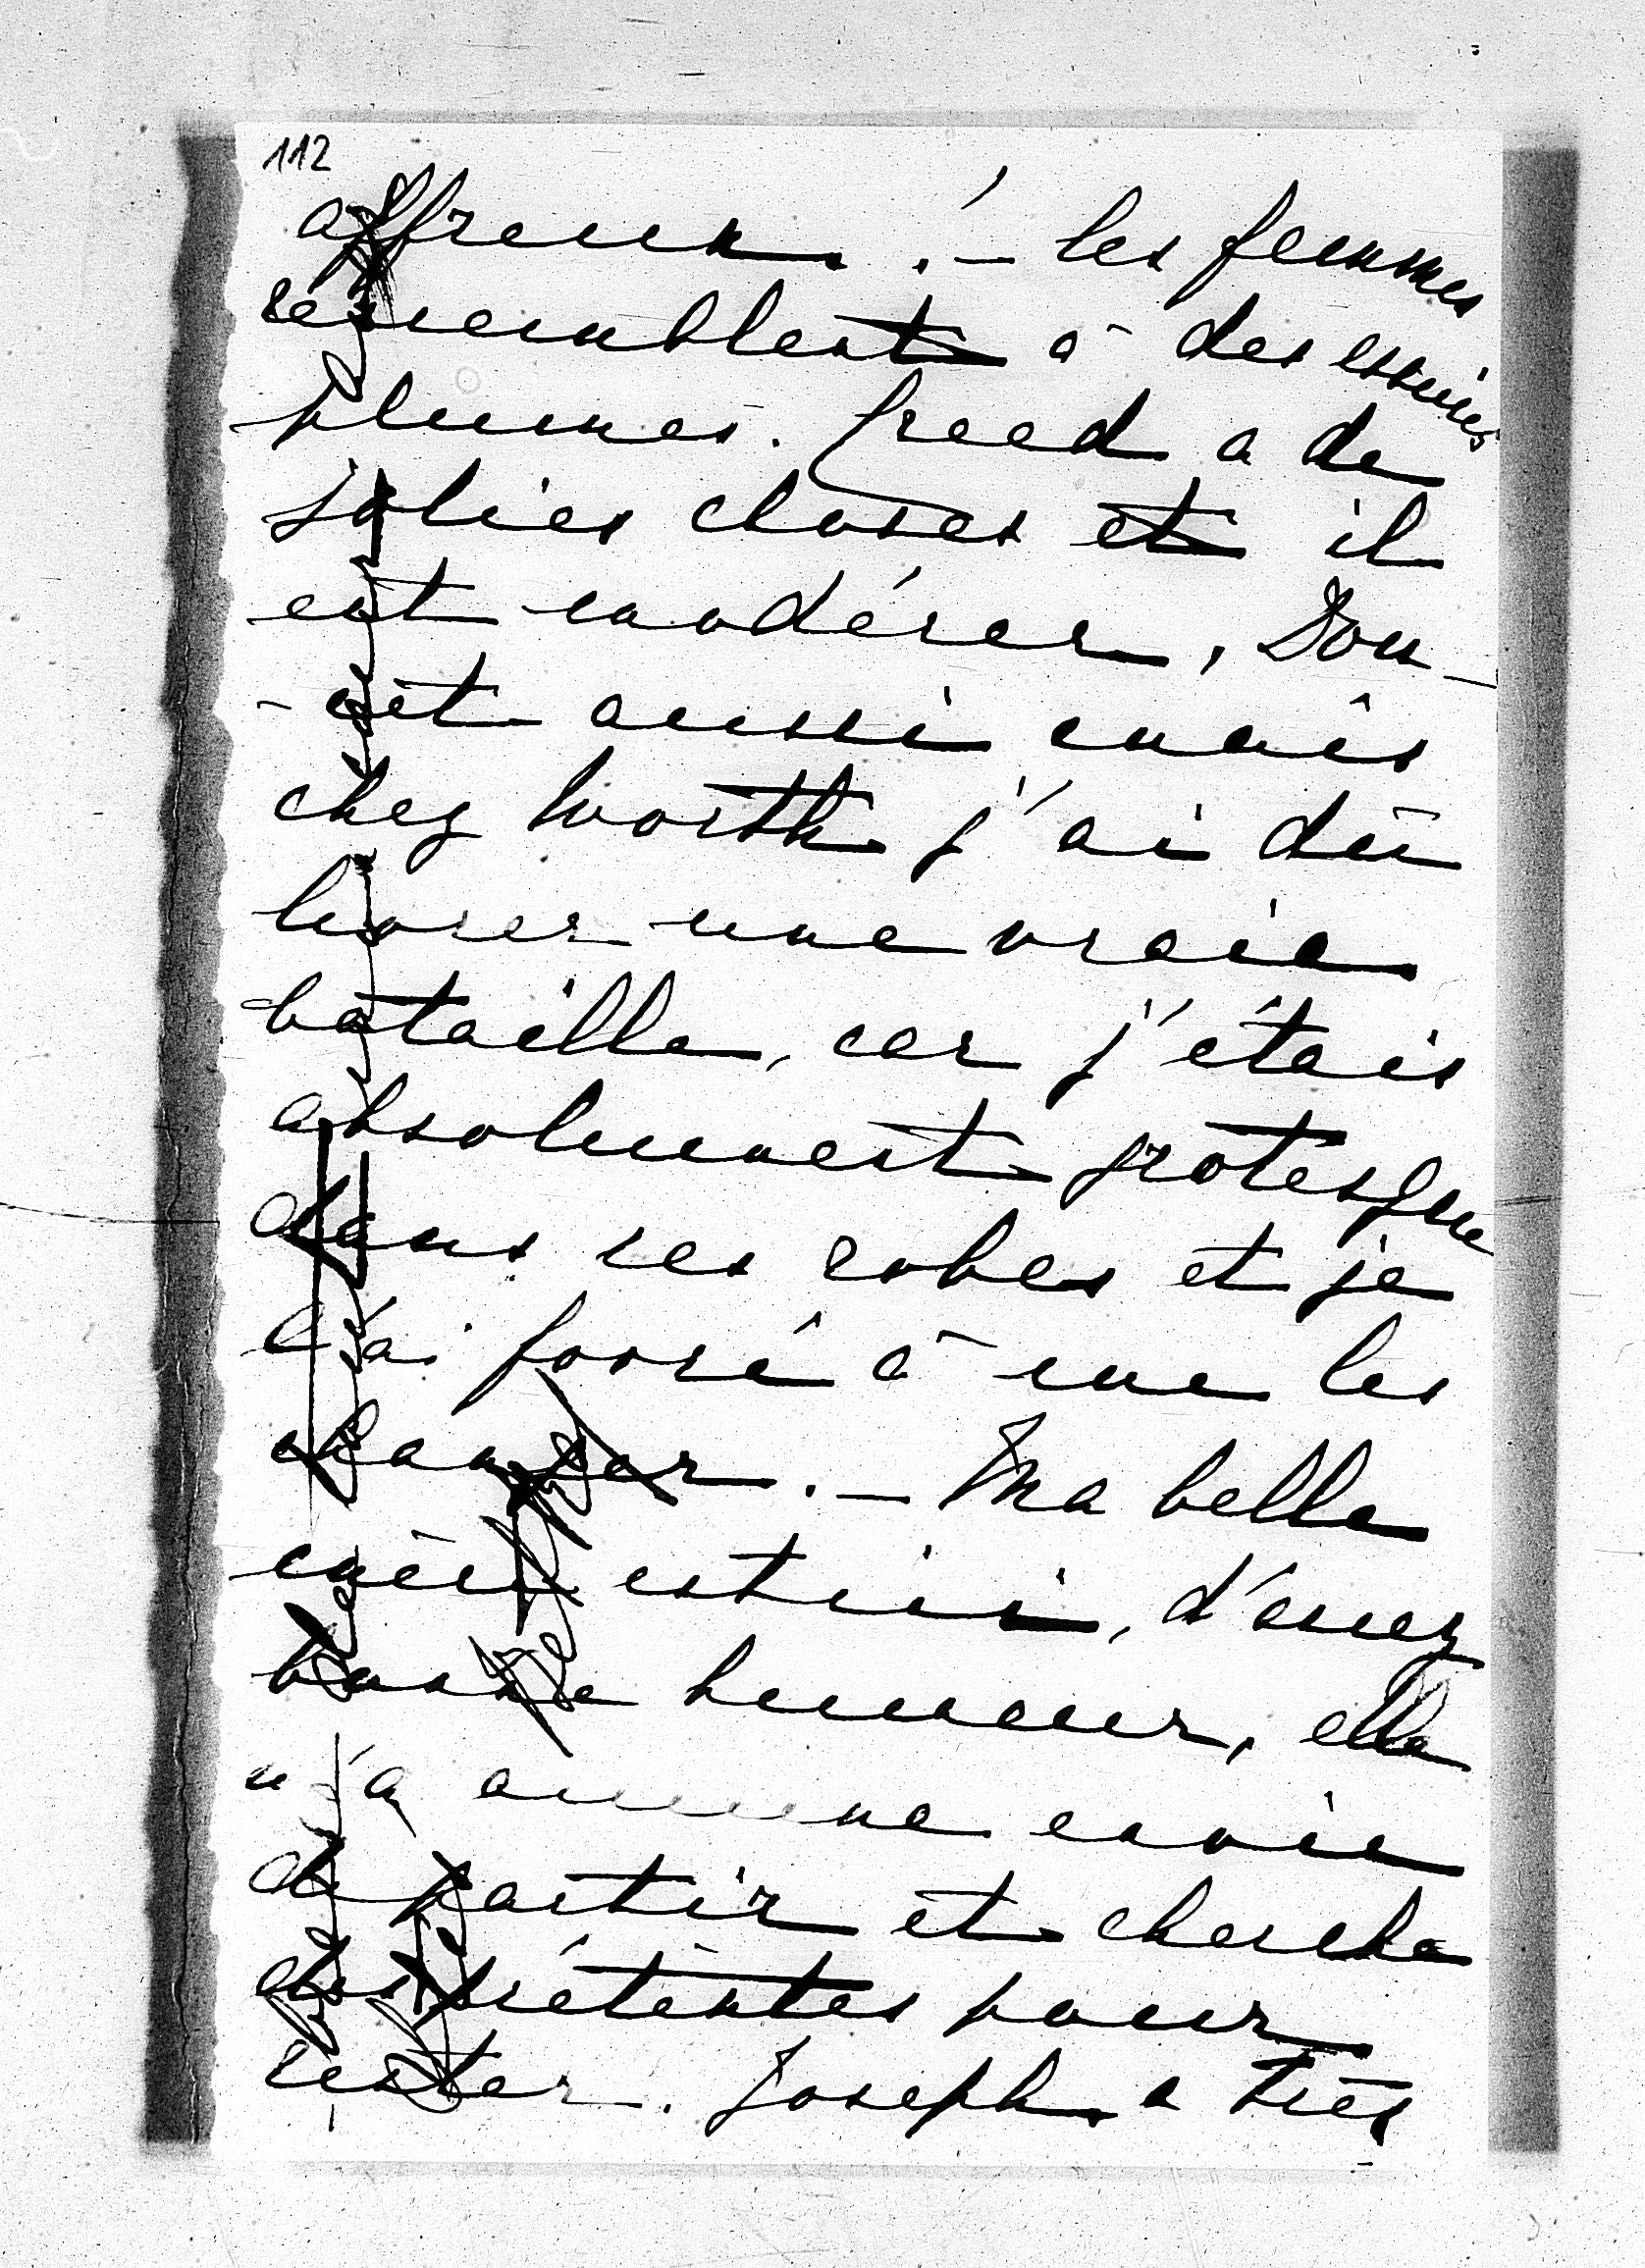 112
affreux. — les femmes
ressemblent à des essuies
plumes. Freed a de
jolies choses et il
est modérer, Dou-
-cet aussi mais
chez Worth j'ai dû
livrer une vraie
bataille, car j'étais
absolument grotesque
dans ses robes et je
l'ai forcé à me les
changer. — Ma belle
mère est ici, d'assez
bonne humeur, elle
n'a aucune envie
de partir et cherche
des prétextes pour
rester. Joseph a très